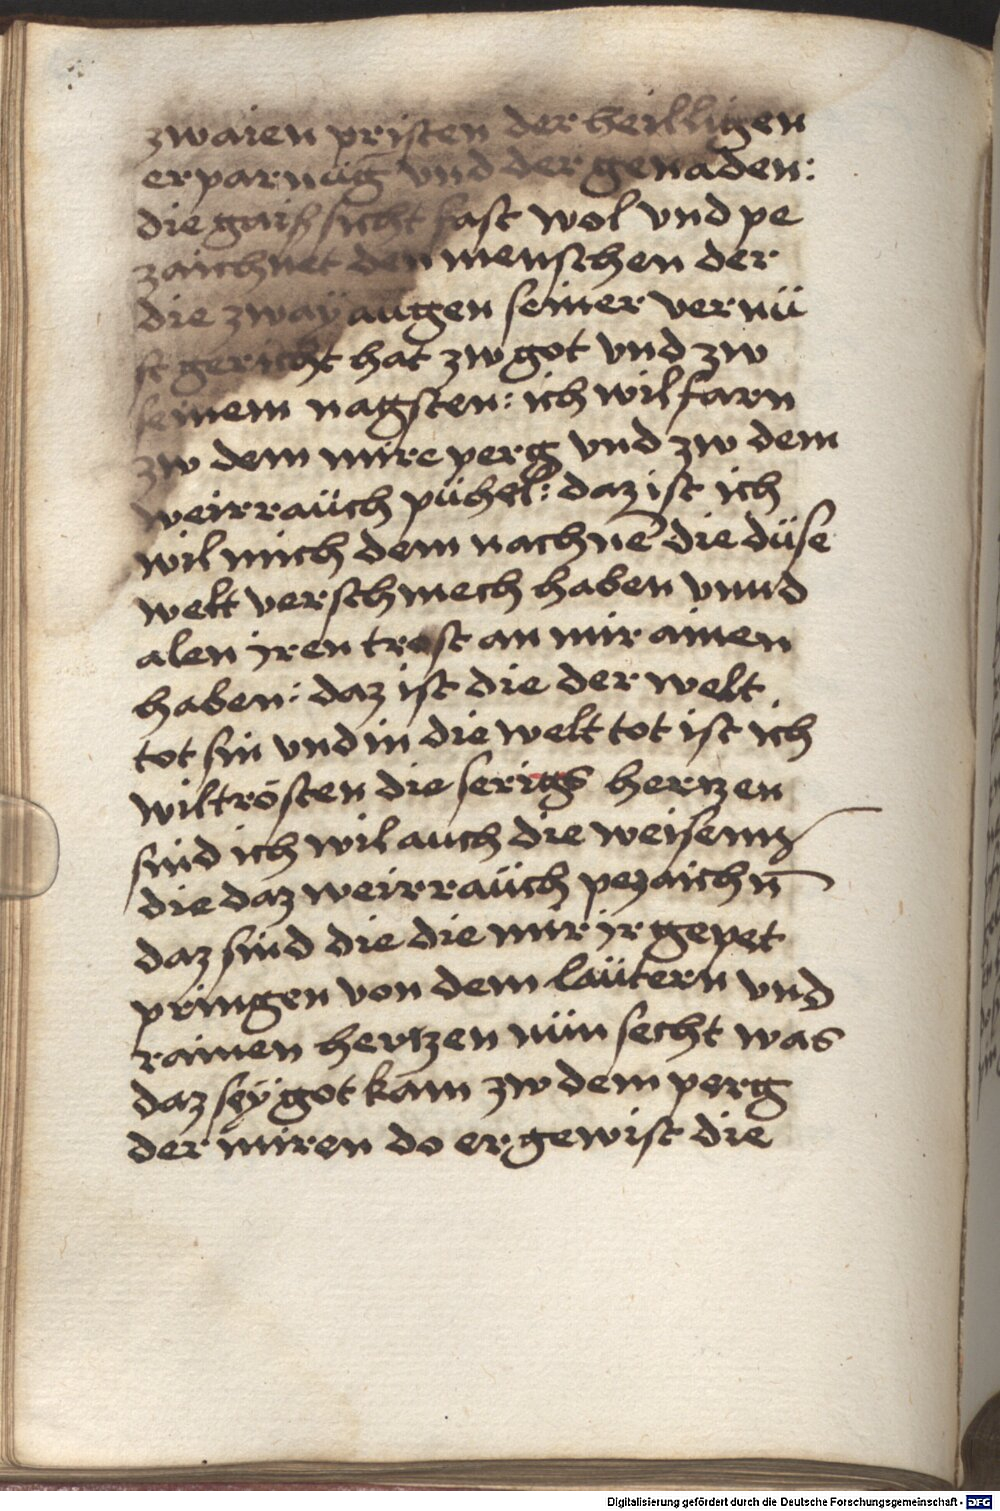 zwaien pristen der heilligen
erparnüg vnd der genaden:
die gaiß sicht fast wol vnd pe
zaichnet den menschen der
die zwaÿ augen seiner vernü
ft gericht hat zw got vnd zw
seinem nagsten: ich wil farn
zw dem mire perg vnd zw dem
weirraüch pühel: daz ist ich
wil mich dem nachnē die düse
welt verschmech haben vnnd
alen jren trost an mir ainen
haben: daz ist die der welt
tot sin vnd in die welt tot ist ich
wil trösten die serigs hertzen
sind ich wil auch die weisenn
die daz weirraüch pezaichn̄
daz sind die die mir jr gepet
pringen von dem laütern vnd
rainen hertzen nün secht was
daz seÿ got kam zw dem perg
der miren do er gewist die
Digitalisierung gefördert durch die Deutsche Forschungsgemeinschaft - DFG